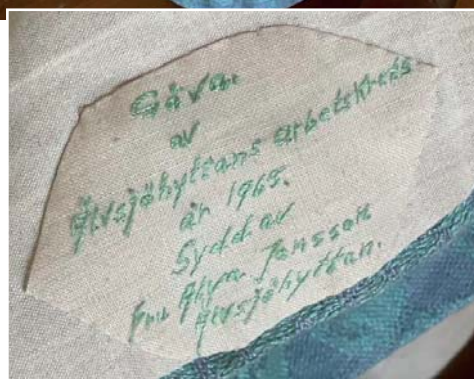 Gåva
av
Älvsjöhyttans arbetskrets
år 1965.
Sydd av
fru Jansson
Älvsjöhyttan.